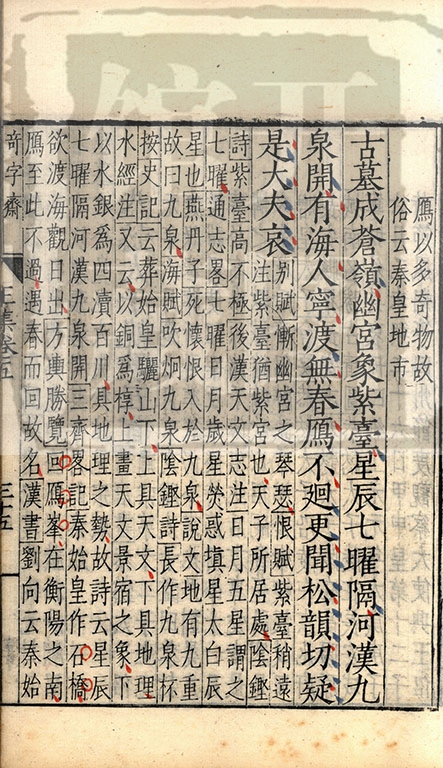 鴈以多奇物故
俗云秦皇地市
古墓成蒼嶺幽宮象紫臺星辰七曜隔河漢九
泉開有海人寧渡無春鴈不廻更聞松韻切疑
是大夫哀
别賦慚幽宮之琴瑟恨賦紫臺稍遠
注紫臺猶紫宮也天子所居處陰鏗
詩紫臺高不極後漢天文志注日月五星謂之
七曜通志畧七曜日月歲星熒惑填星太白辰
星也燕丹子死懷恨入於九泉說文地有九重
故曰九泉海賦吹炯九泉陰鏗詩長作九泉杯
按史記云葬始皇驪山下上具天文下具地理
水經注又云以銅爲椁上畫天文景宿之象下
以水銀爲四瀆百川具地理之勢故詩云星辰
七曜隔河漢九泉開三齊畧記秦始皇作石橋
欲渡海觀日出方輿勝覽回鴈峯在衡陽之南
鴈至此不過遇春而回故名漢書劉向云秦始
奇字齋
王集卷五
三十五